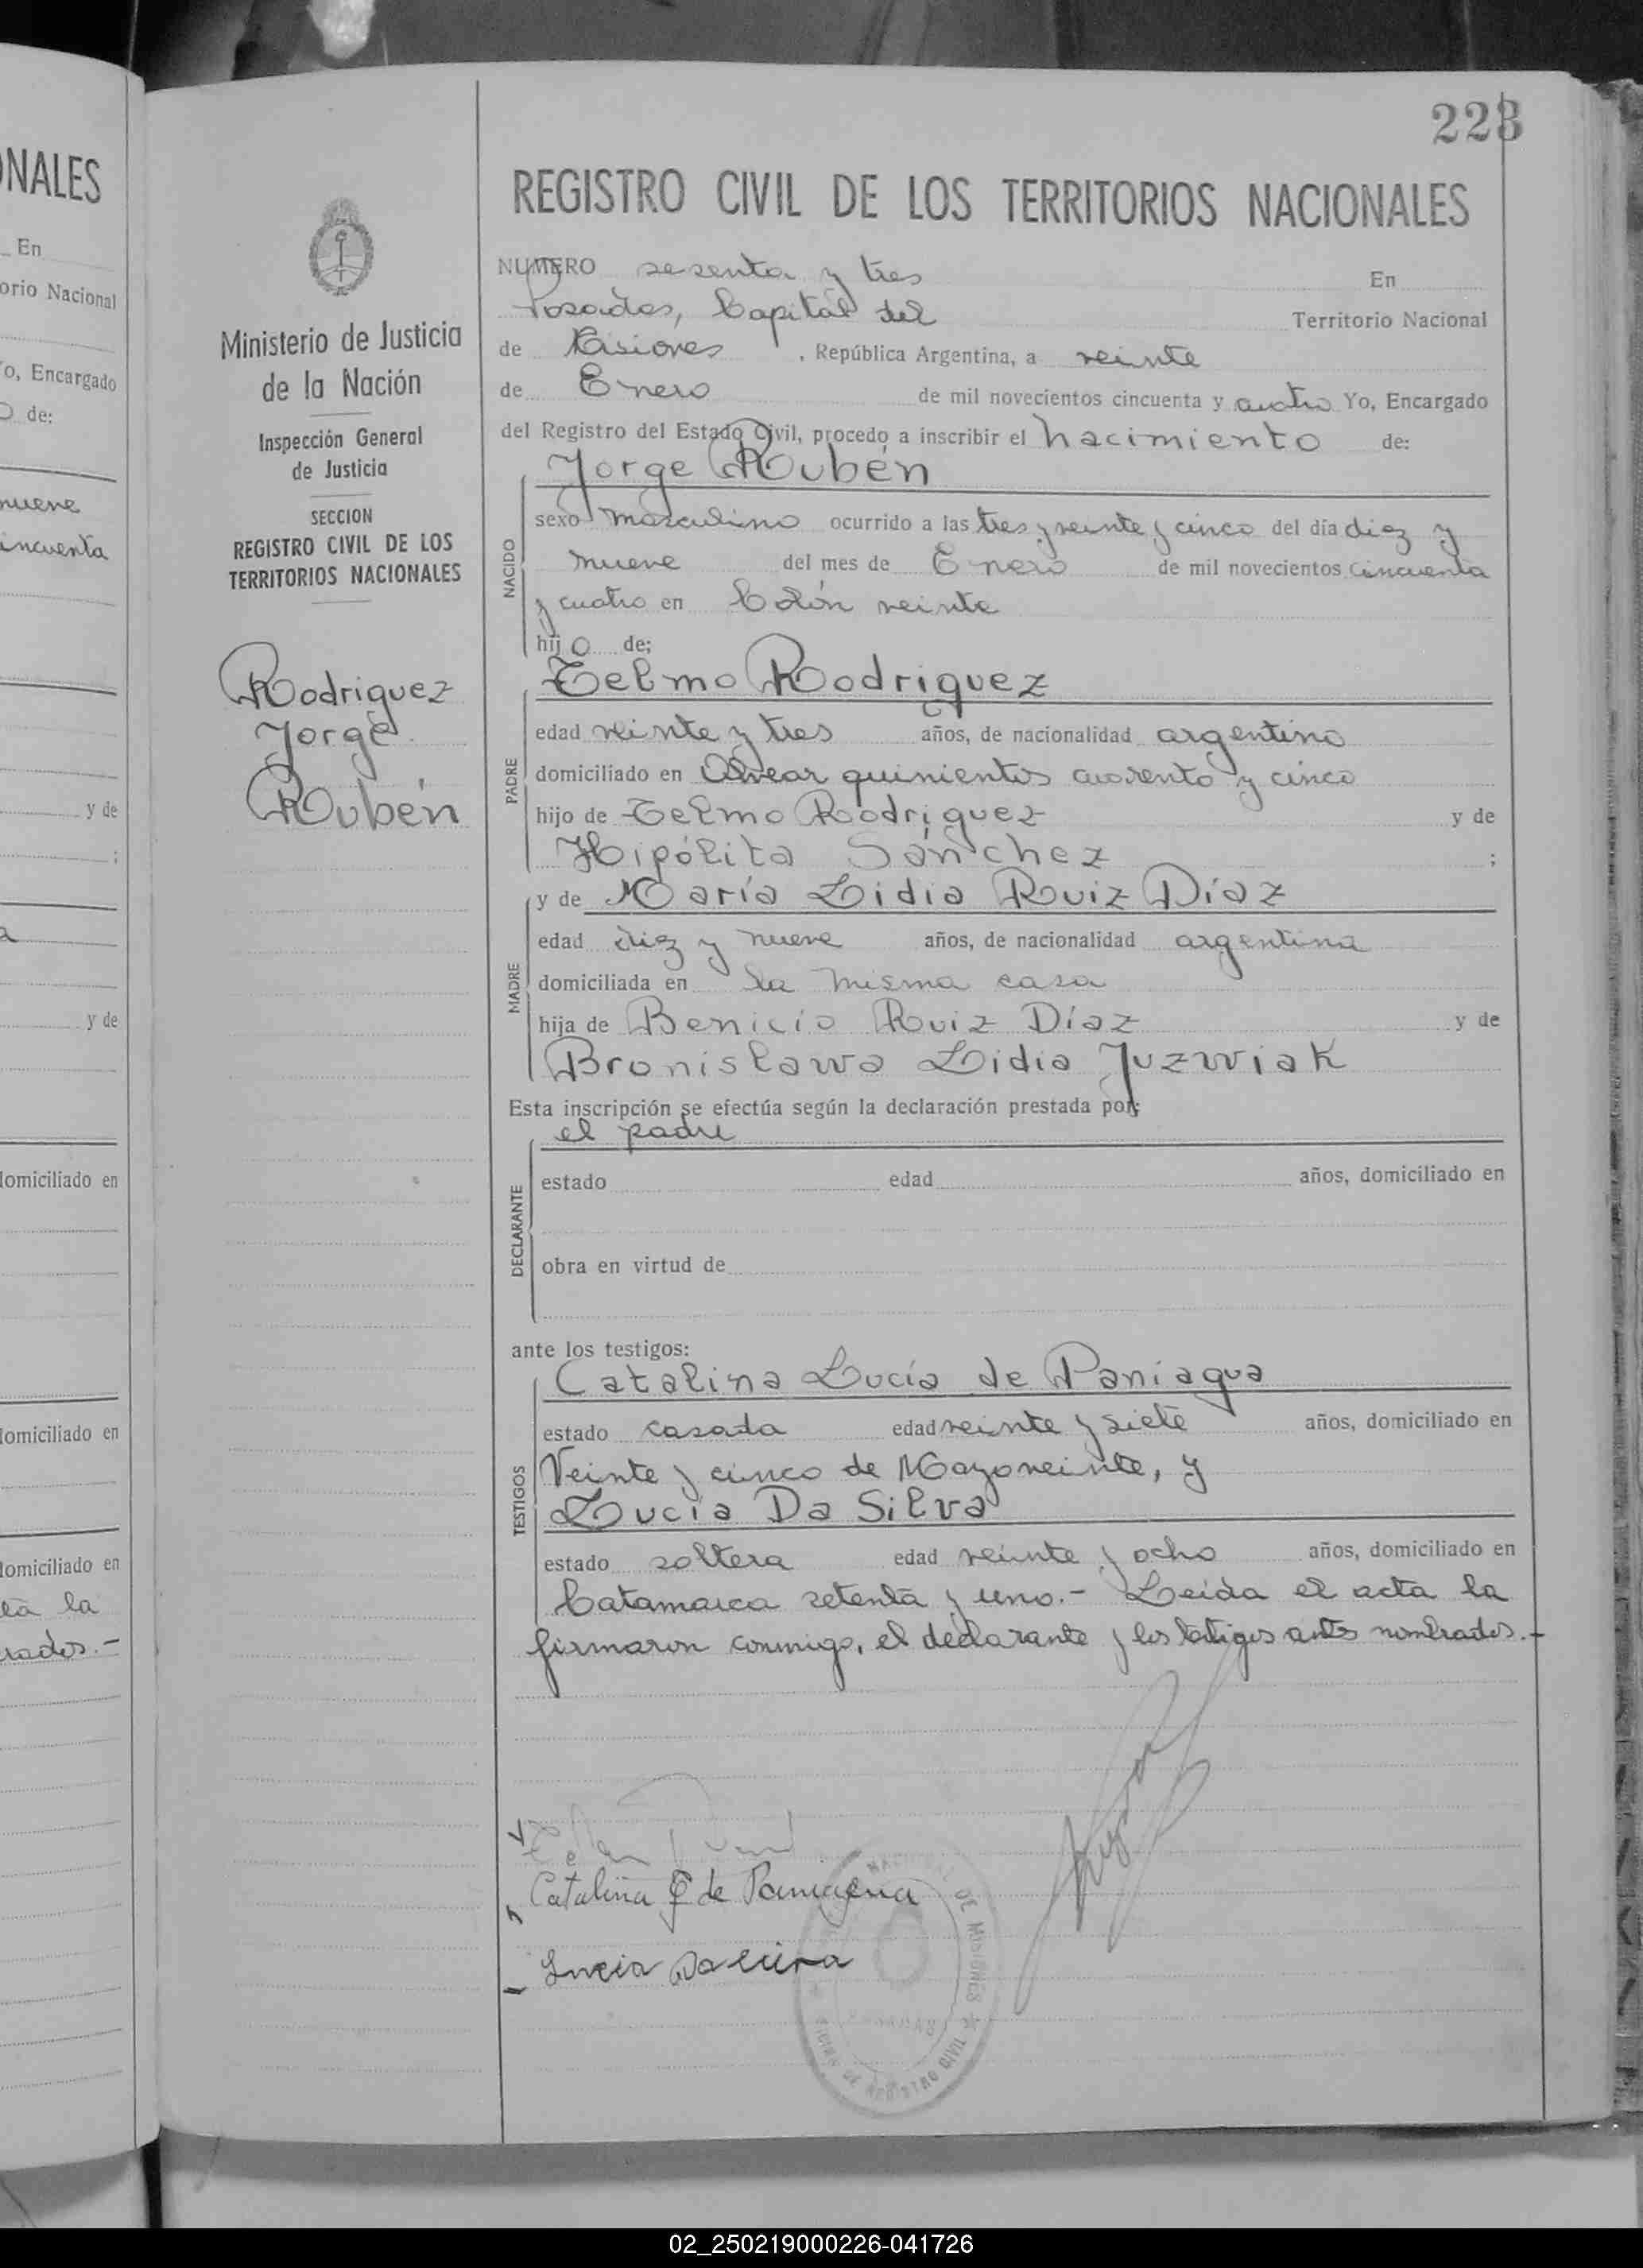 223
REGISTRO CIVIL DE LOS TERRITORIOS NACIONALES
NUMERO sesenta y tres En
Posadas, Capital del Territorio Nacional
de Misiones, República Argentina, a veinte
de Enero de mil novecientos cincuenta y cuatro Yo, Encargado
del Registro del Estado Civil, procedo a inscribir el nacimiento de:
Jorge Rubén
NACIDO
sexo masculino ocurrido a las tres y veinte y cinco del día diez y
nueve del mes de Enero de mil novecientos cincuenta
y cuatro en Colón veinte
hijo de;
Telmo Rodriguez
PADRE
edad veinte y tres años, de nacionalidad argentino
domiciliado en Alvear quinientos cuarenta y cinco
hijo de Telmo Rodriguez y de
Hipólita Sánchez ;
y de María Lidia Ruiz Díaz
MADRE
edad diez y nueve años, de nacionalidad argentina
domiciliada en la misma casa
hija de Benicio Ruiz Díaz y de
Bronislawa Lidia Juzwiak
Esta inscripción se efectúa según la declaración prestada por:
el padre
DECLARANTE
estado edad años, domiciliado en
obra en virtud de
ante los testigos:
Catalina Lucía de Paniagua
TESTIGOS
estado casada edad veinte y siete años, domiciliado en
Veinte y cinco de Mayo veinte, y
Lucía Da Silva
estado soltera edad veinte y ocho años, domiciliado en
Catamarca setenta y uno.- Leída el acta la
firmaron conmigo, el declarante y los testigos antes nombrados.-
Catalina de Paniagua
Lucia Da
NACIONAL DE MISIONES
POSADAS
DE REGISTRO CIVIL
Ministerio de Justicia
de la Nación
Inspección General
de Justicia
SECCION
REGISTRO CIVIL DE LOS
TERRITORIOS NACIONALES
Rodriguez
Jorge
Rubén
ONALES
En
orio Nacional
Yo, Encargado
o de:
nueve
incuenta
y de
;
a
y de
domiciliado en
domiciliado en
domiciliado en
la
rados.-
02_250219000226-041726